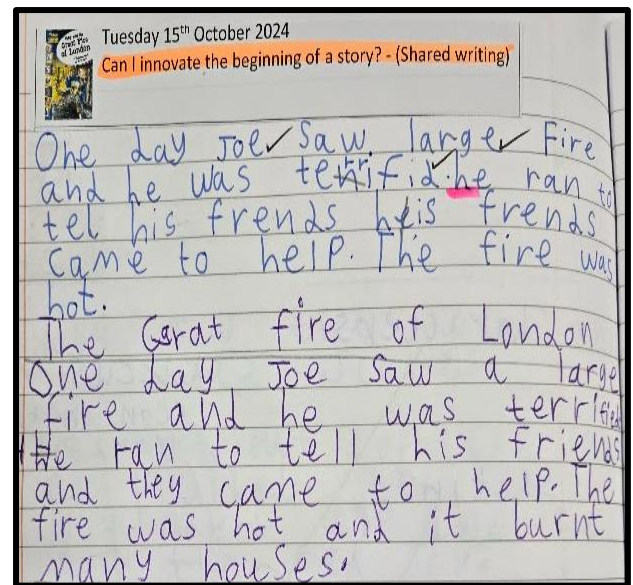 Great Fire
of London
Tuesday 15th October 2024
Can I innovate the beginning of a story? - (Shared writing)
One day Joe saw large Fire
and he was terrifid. he ran to
tel his frends his frends
came to help. The fire was
hot.
The Grat fire of London
One day Joe saw a large
fire and he was terrified
He ran to tell his friends
and they came to help. The
fire was hot and it burnt
many houses.